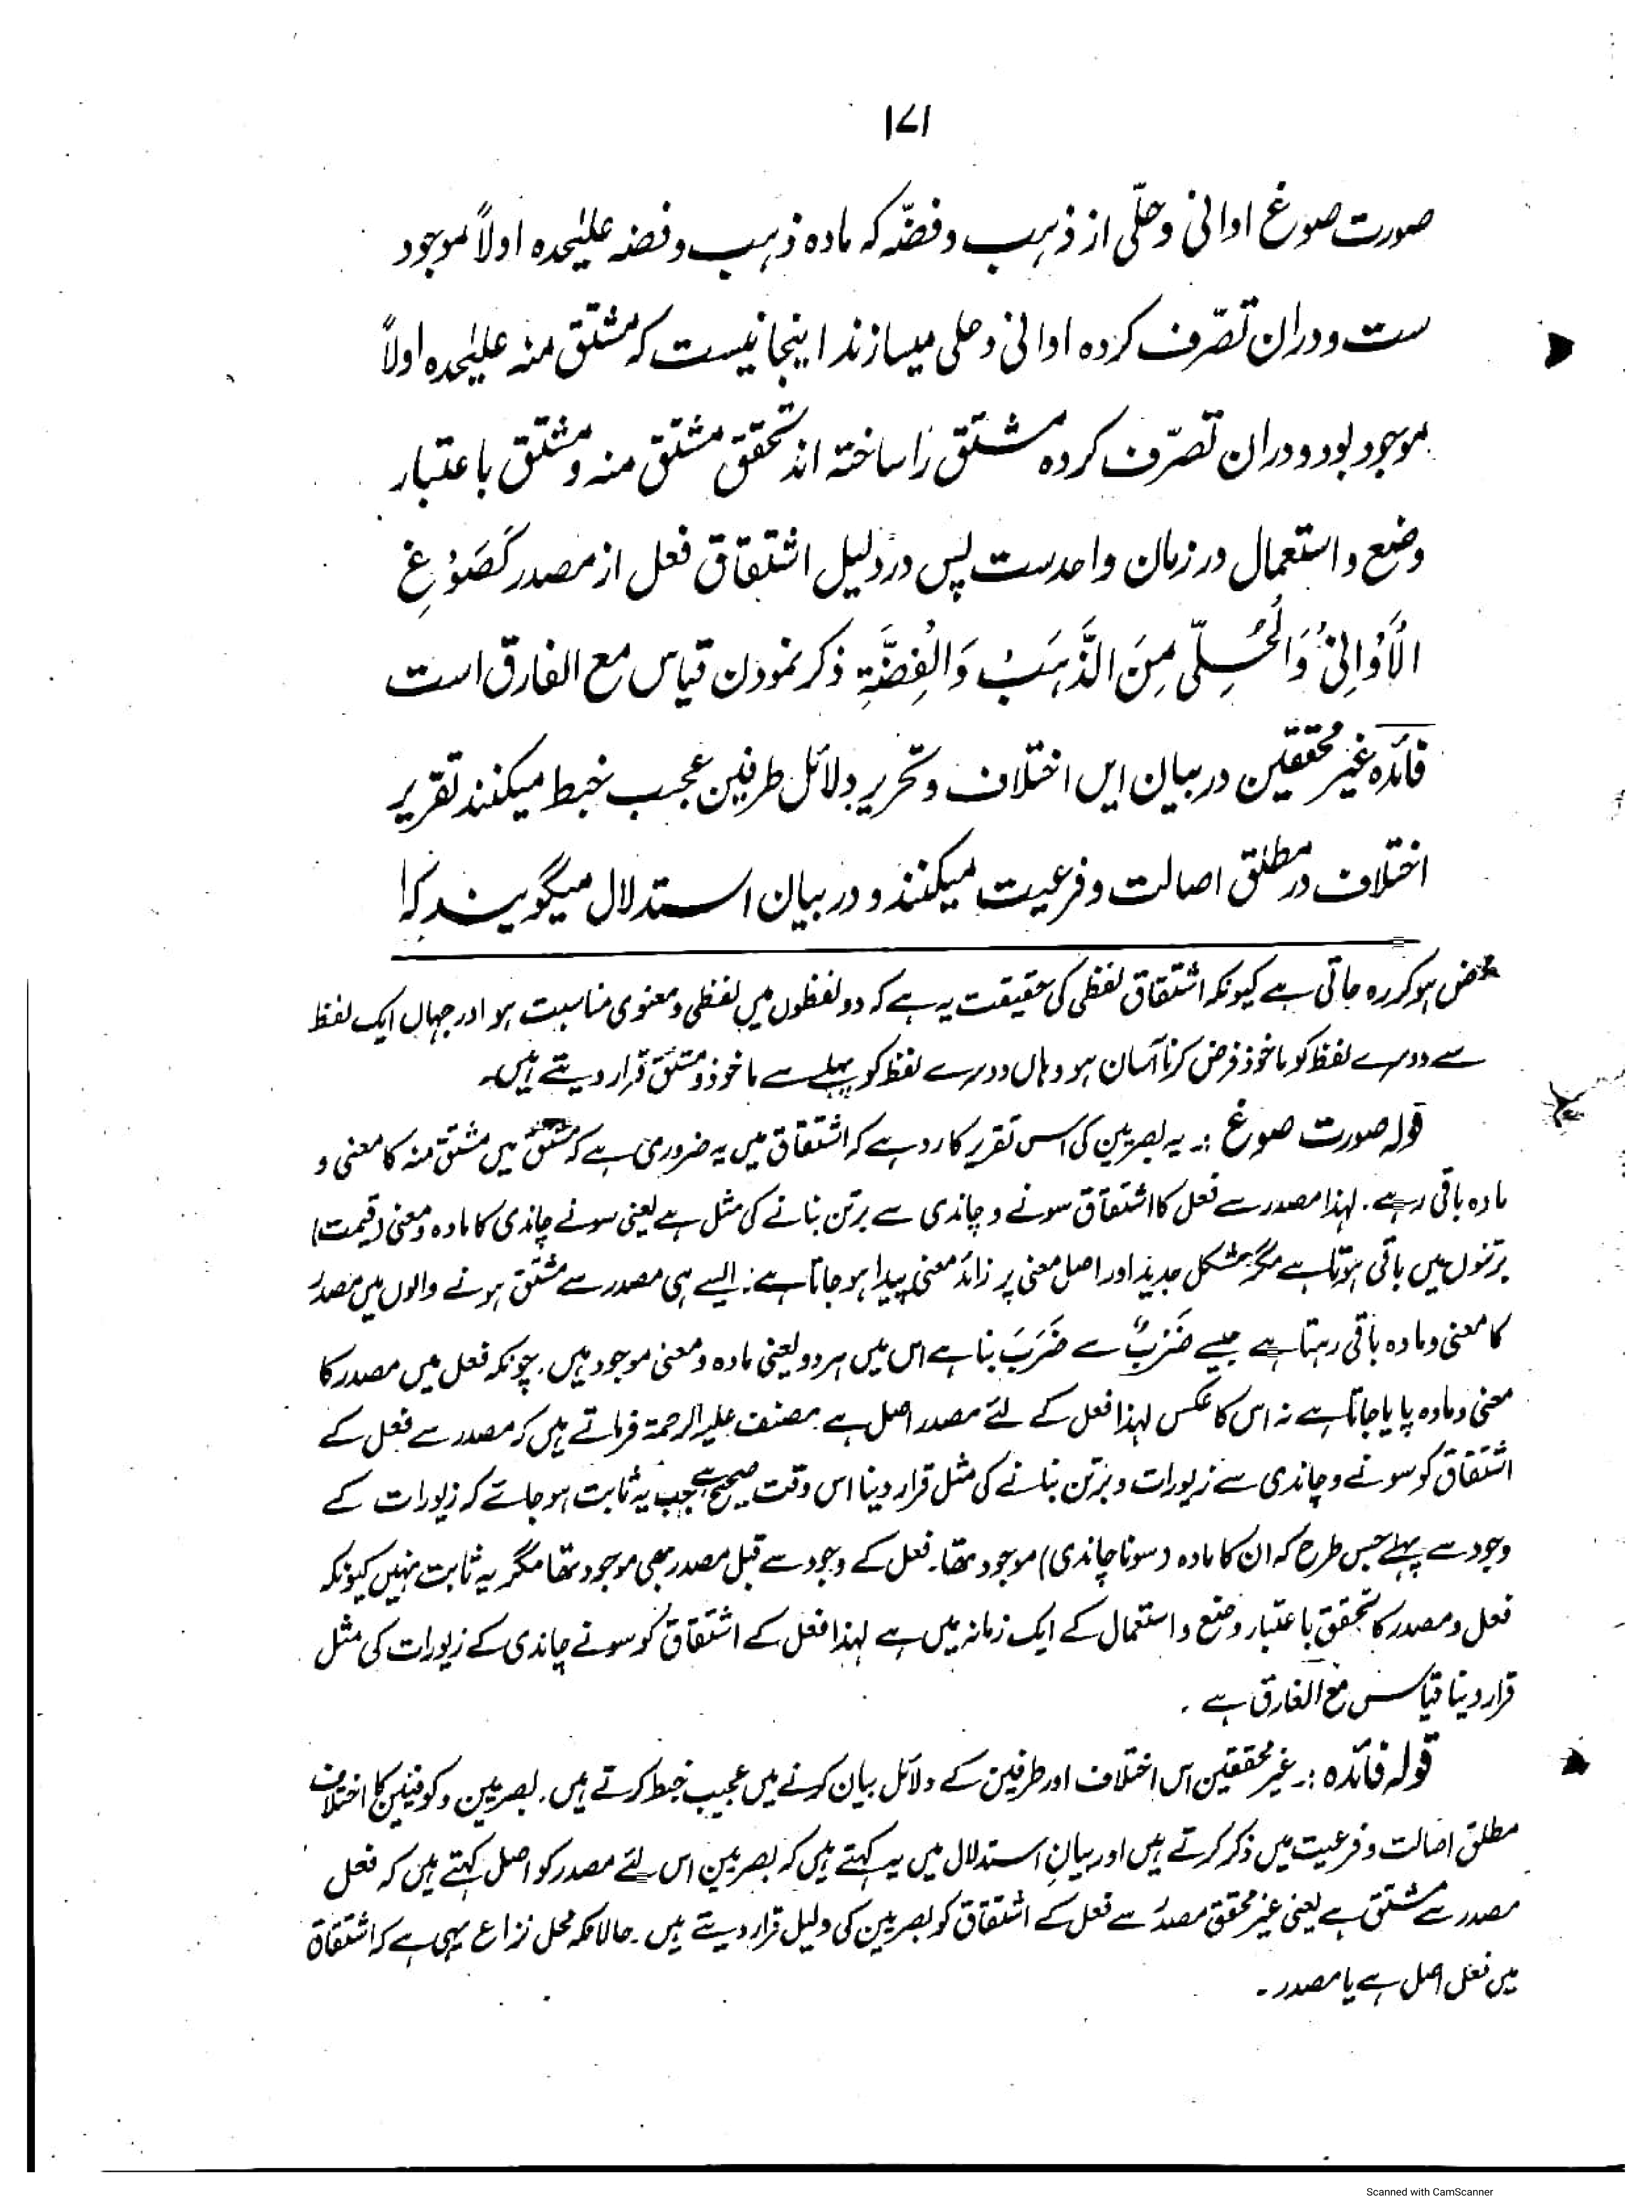 ۱۷۱
صورت صوغ اوانی و حلّی از ذہب و فضّہ کہ مادہ ذہب و فضہ علیٰحدہ اولاً موجود
ست و دران تصرّف کردہ اوانی و حلی میسازند اینجا نیست کہ مشتق منہ علیٰحدہ اولاً
موجود بود و دران تصرّف کردہ مشتق را ساختہ اند تحقق مشتق منہ و مشتق باعتبار
وضع و استعمال در زمان واحدست پس در دلیل اشتقاق فعل از مصدر کَصَوْغِ
الْاَوَانِیْ وَالْحُلِّی مِنَ الذَّہَبِ وَالْفِضَّۃِ ذکر نمودن قیاس مع الفارق است
فائدہ غیر محققین در بیان این اختلاف و تحریر دلائل طرفین عجب خبط میکنند تقریر
اختلاف در مطلق اصالت و فرعیت میکنند و در بیان استدلال میگویند کہ
ہو کر رہ جاتی ہے کیونکہ اشتقاق لفظی کی حقیقت یہ ہے کہ دو لفظوں میں لفظی و معنوی مناسبت ہو اور جہاں ایک لفظ
سے دوسرے لفظ کو ماخوذ فرض کرنا آسان ہو وہاں دوسرے لفظ کو پہلے سے ماخوذ و مشتق قرار دیتے ہیں۔
قولہ صورت صوغ :۔ یہ بصریین کی اس تقریر کا رد ہے کہ اشتقاق میں یہ ضروری ہے کہ مشتق میں مشتق منہ کا معنی و
مادہ باقی رہے۔ لہٰذا مصدر سے فعل کا اشتقاق سونے و چاندی سے برتن بنانے کی مثل ہے یعنی سونے چاندی کا مادہ و معنی (قیمت)
برتنوں میں باقی ہوتا ہے مگر شکل جدید اور اصل معنی پر زائد معنی پیدا ہو جاتا ہے۔ ایسے ہی مصدر سے مشتق ہونے والوں میں مصدر
کا معنی و مادہ باقی رہتا ہے جیسے ضَرْبٌ سے ضَرَبَ بنا ہے اس میں ہر دو یعنی مادہ و معنی موجود ہیں۔ چونکہ فعل میں مصدر کا
معنی و مادہ پایا جاتا ہے نہ اس کا عکس لہذا فعل کے لئے مصدر اصل ہے۔ مصنف علیہ الرحمۃ فرماتے ہیں کہ مصدر سے فعل کے
اشتقاق کو سونے و چاندی سے زیورات و برتن بنانے کی مثل قرار دینا اس وقت صحیح ہے جب یہ ثابت ہو جائے کہ زیورات کے
وجود سے پہلے جس طرح کہ ان کا مادہ (سونا چاندی) موجود تھا۔ فعل کے وجود سے قبل مصدر بھی موجود تھا مگر یہ ثابت نہیں کیونکہ
فعل و مصدر کا تحقق باعتبار وضع و استعمال کے ایک زمانہ میں ہے لہذا فعل کے اشتقاق کو سونے چاندی کے زیورات کی مثل
قرار دینا قیاس مع الفارق ہے۔
قولہ فائدہ :۔ غیر محققین اس اختلاف اور طرفین کے دلائل بیان کرنے میں عجیب خبط کرتے ہیں۔ بصریین و کوفیین کا اختلاف
مطلق اصالت و فرعیت میں ذکر کرتے ہیں اور بیانِ استدلال میں یہ کہتے ہیں کہ بصریین اس لئے مصدر کو اصل کہتے ہیں کہ فعل
مصدر سے مشتق ہے یعنی غیر محقق مصدر سے فعل کے اشتقاق کو بصریین کی دلیل قرار دیتے ہیں۔ حالانکہ محل نزاع یہی ہے کہ اشتقاق
میں فعل اصل ہے یا مصدر۔
Scanned with CamScanner